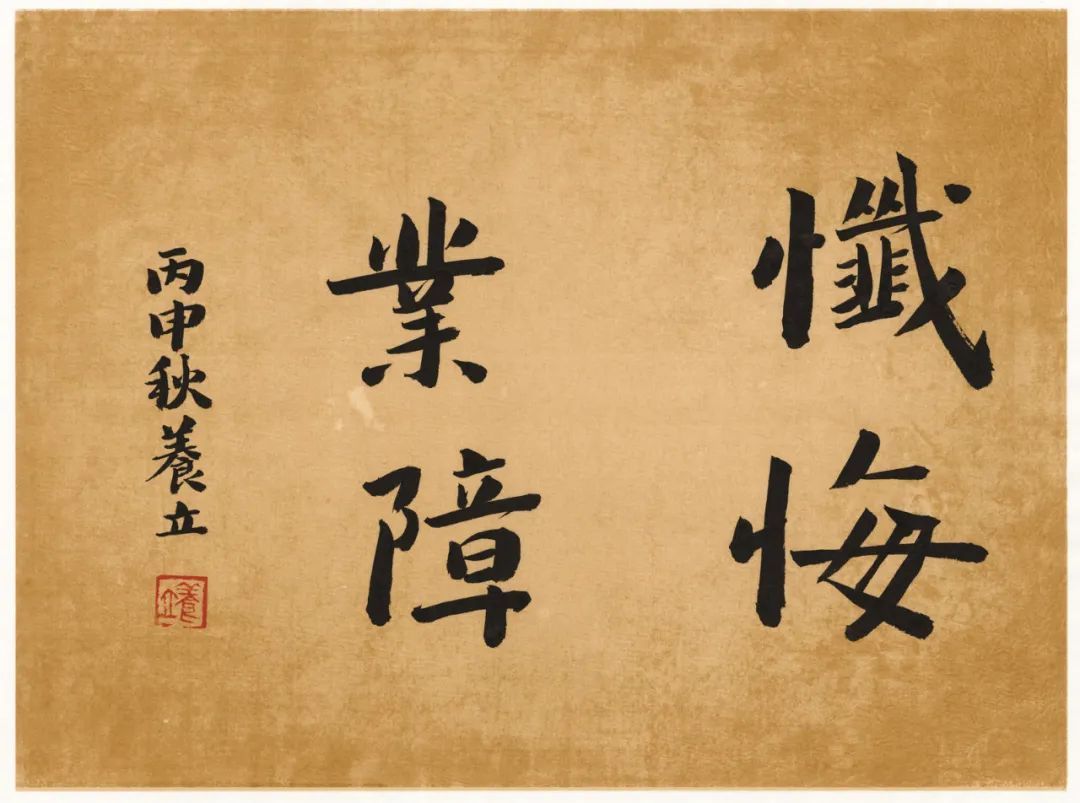 懺悔
業障
丙申秋養立
養立